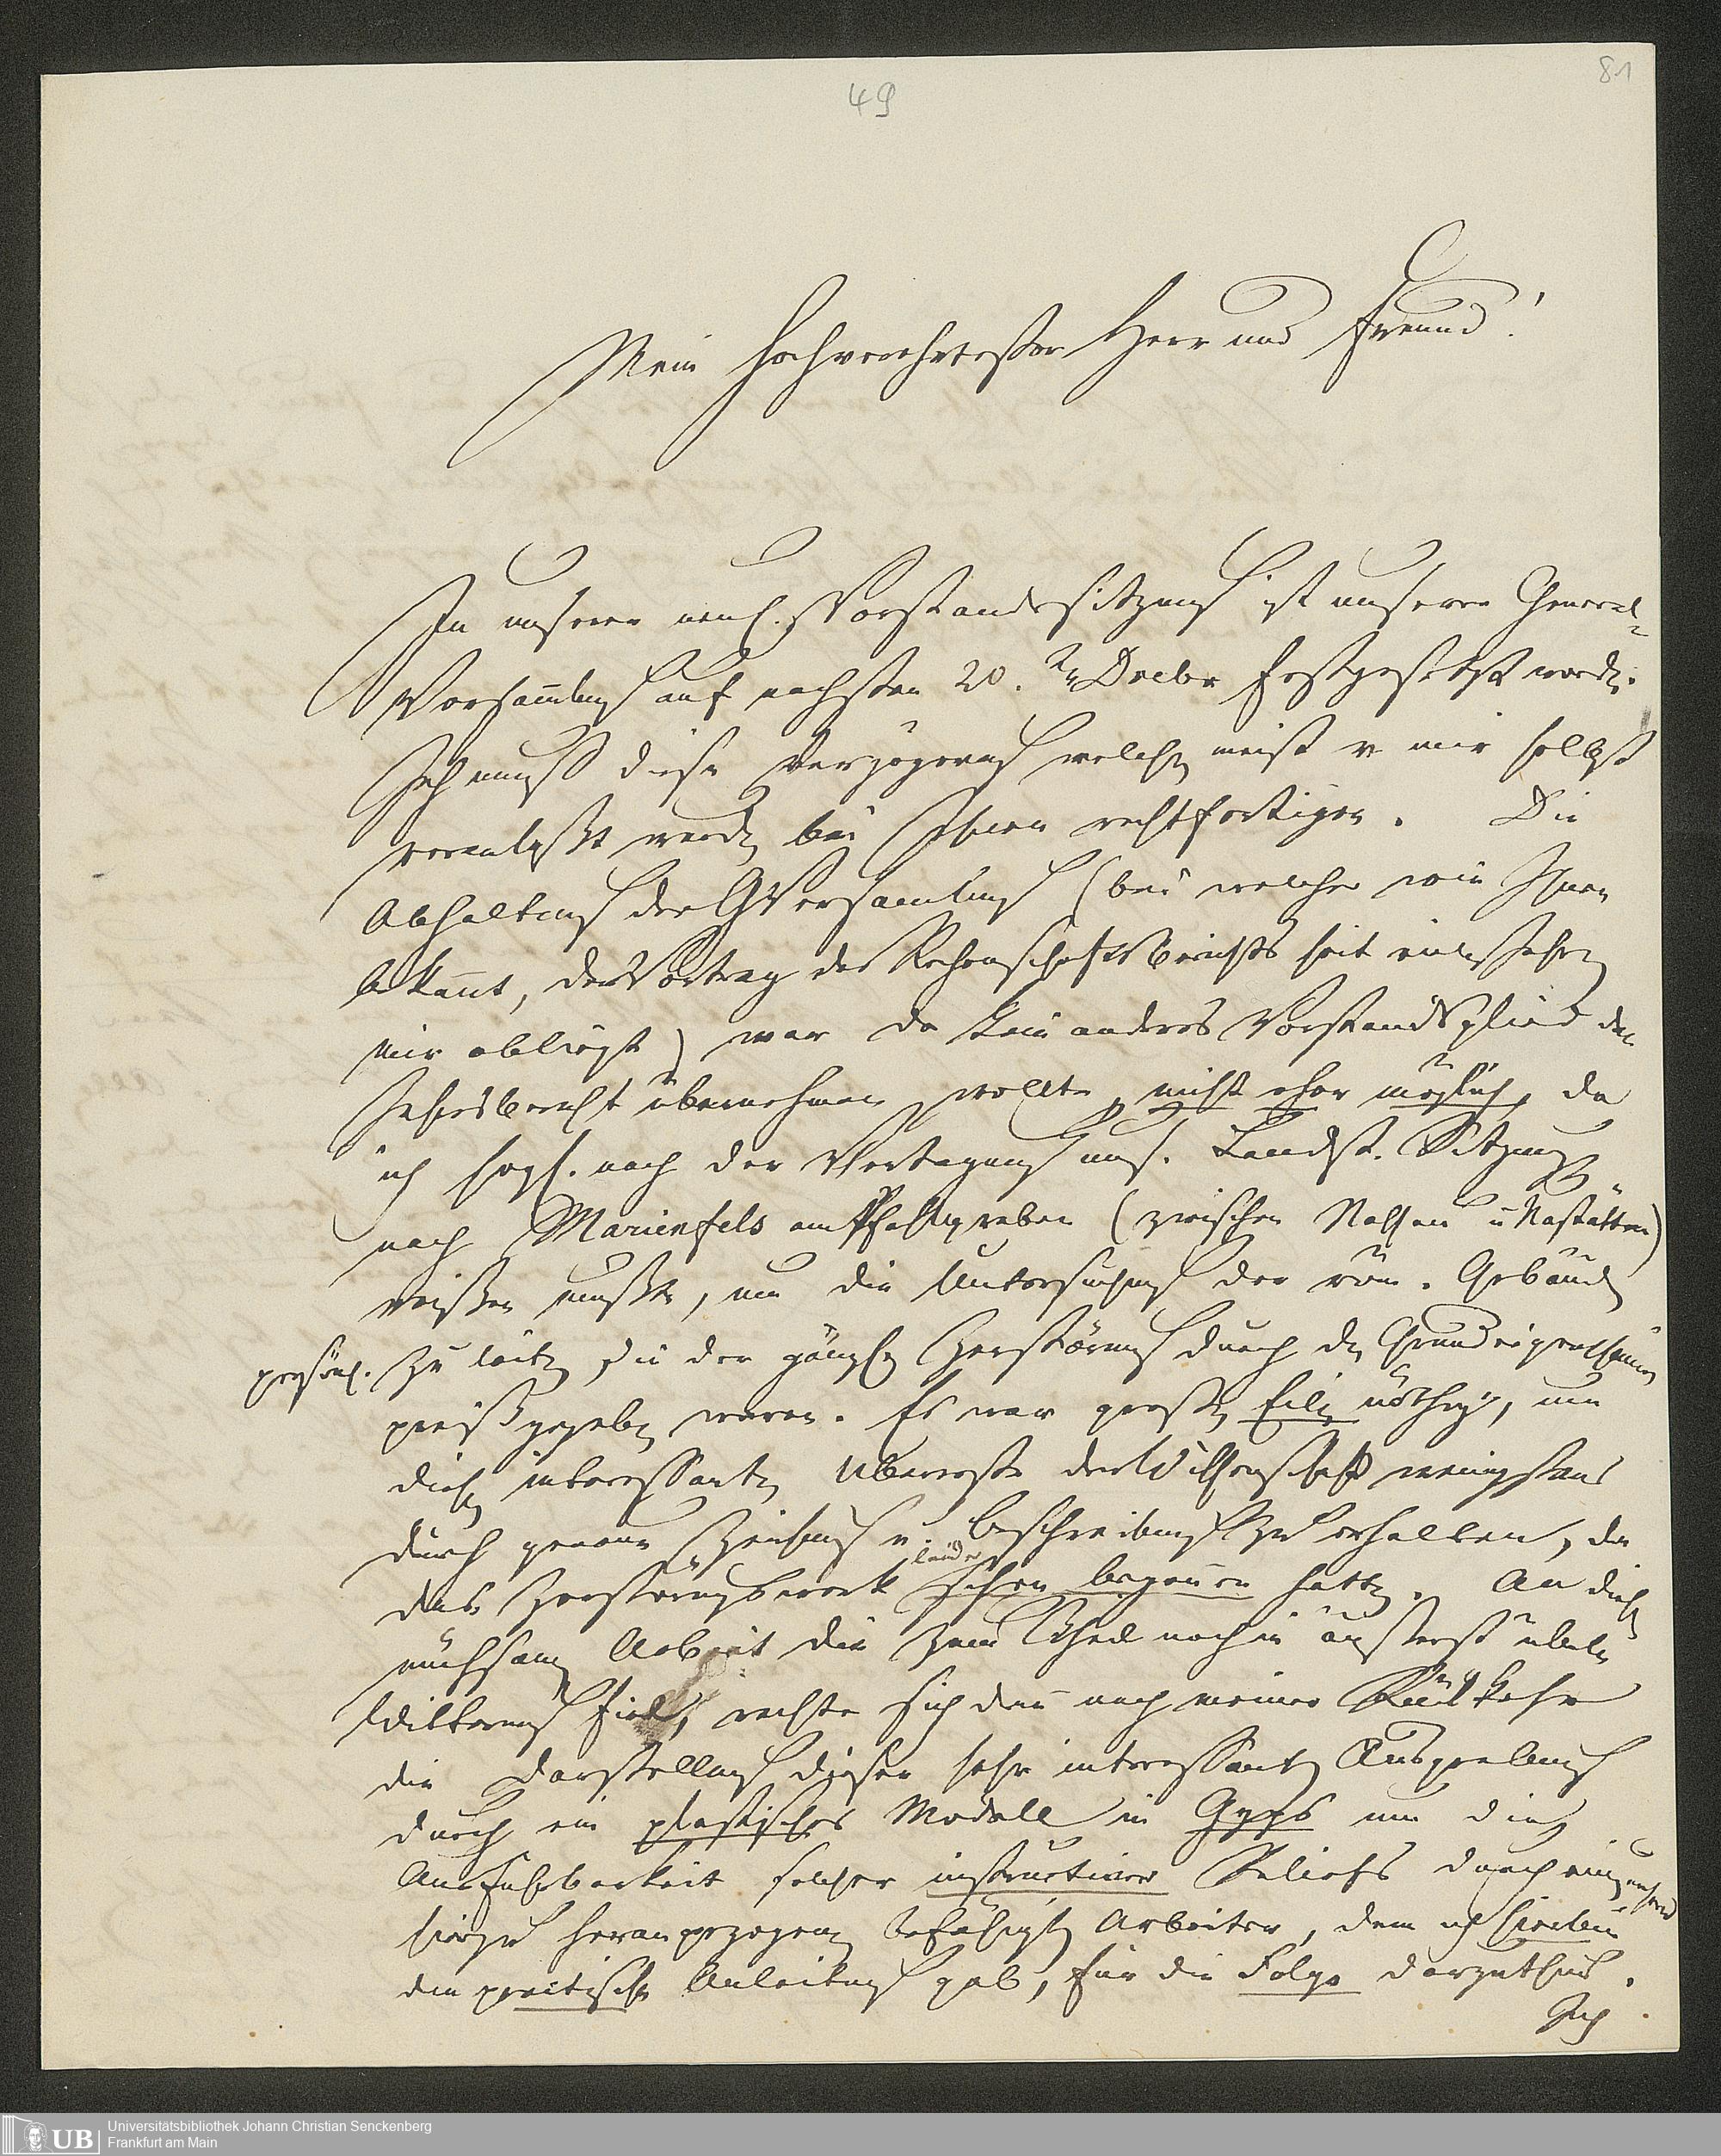 49
81
Mein hochverehrtester Herr und Freund!
In unserer neul. Vorstandssitzung ist unsere General-
Versamlung auf nächsten 20.ten Decbr festgesetzt word.
Ich muß diese Verzögerung welche meist v mir selbst
veranlaßt worden bei Ihnen rechtfertigen. Die
Abhaltung der GVersamlung (bei welcher wie Ihnen
bekannt, der Vortrag des Rechenschaftsberichts seit vielen Jahren
mir obliegt) war da kein anderes Vorstandsglied den
Jahresbericht übernehmen wollte, nicht eher möglich, da
ich sogl. nach der Vertagung uns. Landst. Sitzung
nach Marienfels am Pfahlgraben (zwischen Nassau u Nastätten)
reißen mußte, um die Untersuchung der röm. Gebäude
persönl. zu leiten, die der gänzlichen Zerstörung durch den Grundeigenthümer
preißgegeben waren. Es war große Eile nöthig, um
diese interessanten Überreste der Wissenschaft wenigstens
durch genaue Zeichnung u. Beschreibung zu erhalten, da
das Zerstörungswerk leider schon begonnen hatte. An diese
mühsame Arbeit die zum Theil noch in äußerst üble
Witterung fiel, reihte sich dann nach meiner Rückkehr
die Darstellung dieser sehr interessanten Ausgrabung
durch ein plastisches Modell in Gyps um die
Ausführbarkeit solcher instructiver Reliefs durch einen
hierzu herangezogenen befähigten Arbeiter, dem ich hierbei
die practische Anleitung gab, für die Folge darzuthun.
Ich
UB Universitätsbibliothek Johann Christian Senckenberg
Frankfurt am Main